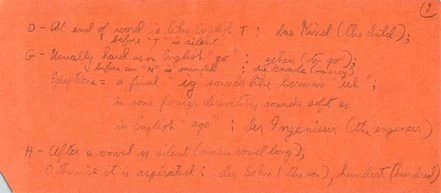 D - At end of word is like English T : das Kind (the child);
before "T" is silent
G - Usually hard as in English "go" ; gehen (to go);
before an "N" is sounded ; die Gnade (mercy);
Exceptions = a final "ig" sounds like German "ich" ;
in some foreign derivatives sounds soft as
in English "age" : der Ingenieur (the engineer)
H - After a vowel is silent (makes vowel long);
Otherwise it is aspirated : der Sohn (the son), hundert (hundred)